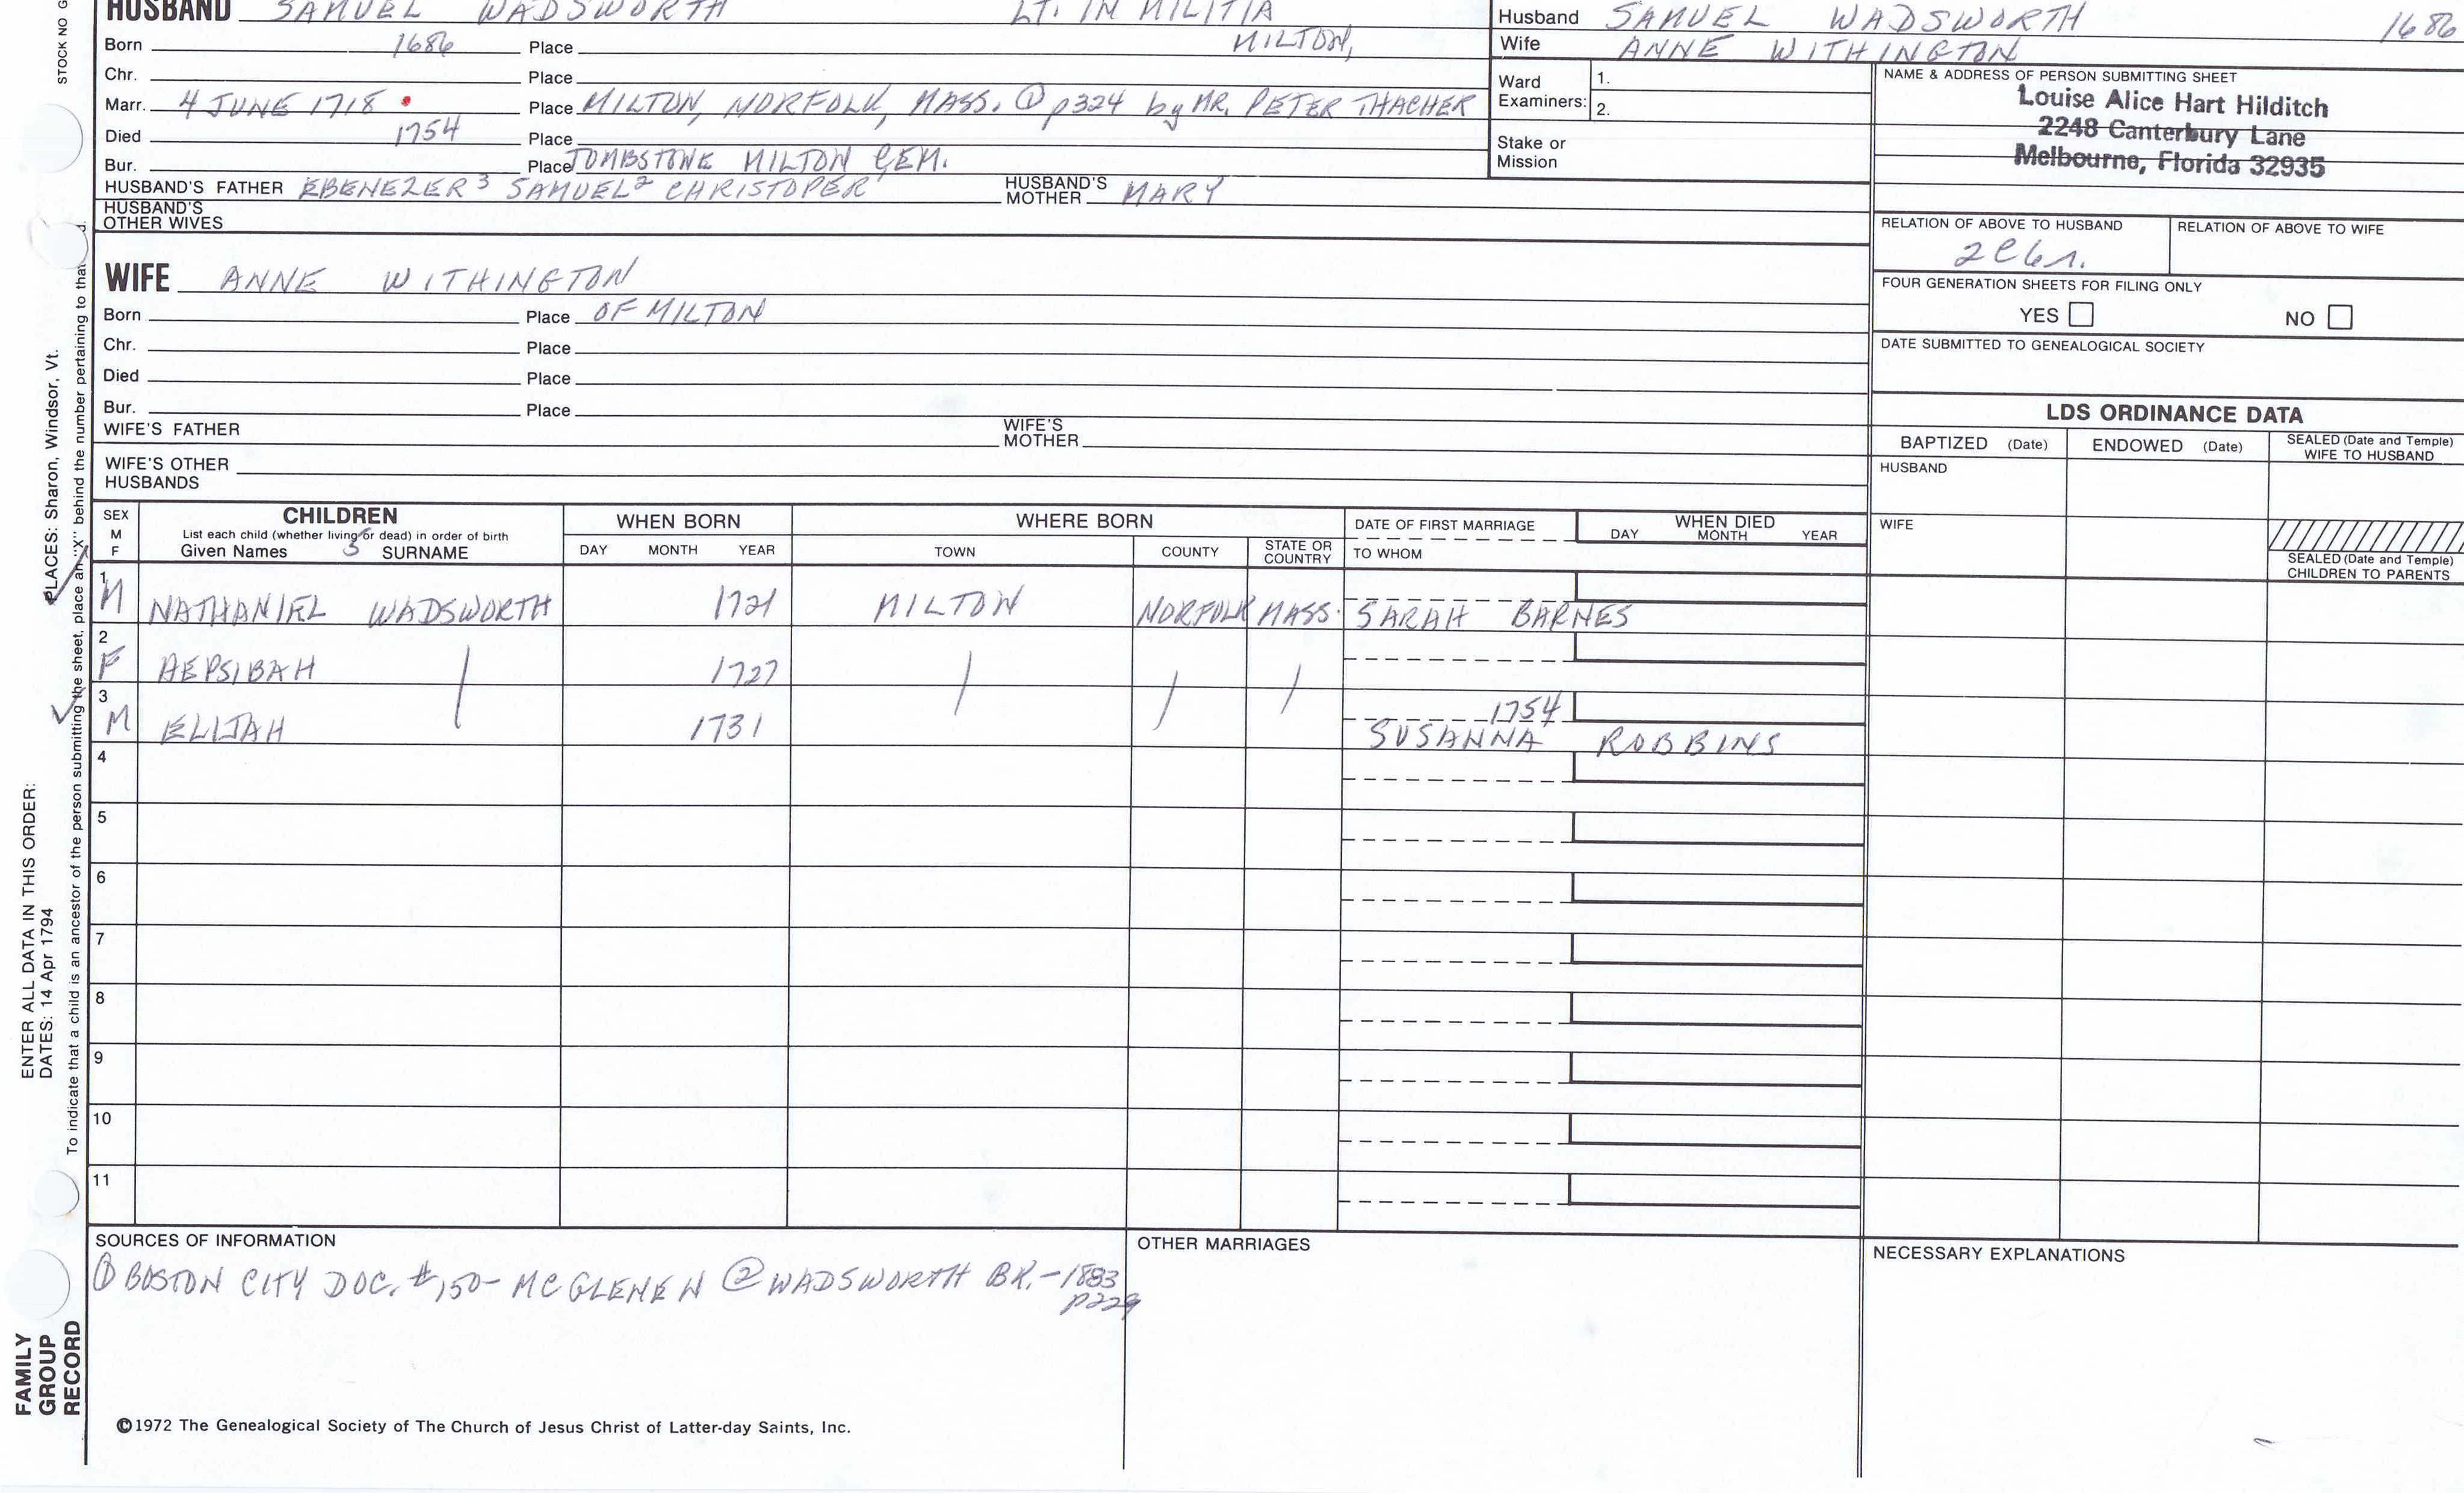 STOCK NO G
HUSBAND SAMUEL WADSWORTH LT. IN MILITIA
Born 1686 Place MILTON,
Chr. Place
Marr. 4 JUNE 1718 Place MILTON, NORFOLK, MASS. ① p324 by MR. PETER THACHER
Died 1754 Place
Bur. Place TOMBSTONE MILTON CEM.
HUSBAND'S FATHER EBENEZER³ SAMUEL² CHRISTOPER' HUSBAND'S MOTHER MARY
HUSBAND'S OTHER WIVES
Husband SAMUEL WADSWORTH 1686
Wife ANNE WITHINGTON
Ward Examiners: 1.
2.
Stake or Mission
NAME & ADDRESS OF PERSON SUBMITTING SHEET
Louise Alice Hart Hilditch
2248 Canterbury Lane
Melbourne, Florida 32935
RELATION OF ABOVE TO HUSBAND RELATION OF ABOVE TO WIFE
FOUR GENERATION SHEETS FOR FILING ONLY
YES NO
DATE SUBMITTED TO GENEALOGICAL SOCIETY
WIFE ANNE WITHINGTON
Born Place OF MILTON
Chr. Place
Died Place
Bur. Place
WIFE'S FATHER WIFE'S MOTHER
WIFE'S OTHER HUSBANDS
LDS ORDINANCE DATA
BAPTIZED (Date) ENDOWED (Date) SEALED (Date and Temple) WIFE TO HUSBAND
HUSBAND
WIFE
SEALED (Date and Temple) CHILDREN TO PARENTS
SEX M F CHILDREN WHEN BORN WHERE BORN DATE OF FIRST MARRIAGE WHEN DIED
List each child (whether living or dead) in order of birth
Given Names SURNAME DAY MONTH YEAR TOWN COUNTY STATE OR COUNTRY TO WHOM DAY MONTH YEAR
1 M NATHANIEL WADSWORTH 1721 MILTON NORFOLK MASS. SARAH BARNES
2 F HEPSIBAH 1727
3 M ELIJAH 1731 1754 SUSANNA ROBBINS
4
5
6
7
8
9
10
11
SOURCES OF INFORMATION OTHER MARRIAGES NECESSARY EXPLANATIONS
① BOSTON CITY DOC. #150- MCGLENEN ② WADSWORTH BK.-1883
p229
©1972 The Genealogical Society of The Church of Jesus Christ of Latter-day Saints, Inc.
ENTER ALL DATA IN THIS ORDER:
DATES: 14 Apr 1794 PLACES: Sharon, Windsor, Vt.
To indicate that a child is an ancestor of the person submitting the sheet, place an "X" behind the number pertaining to that d.
FAMILY
GROUP
RECORD